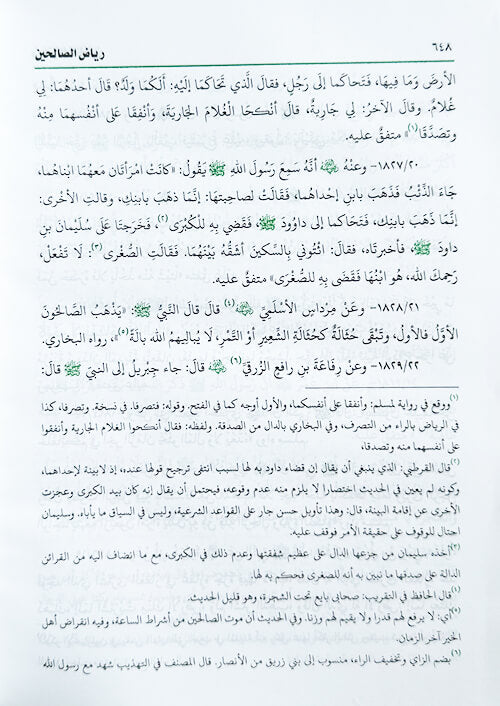 ٦٤٨ رياض الصالحين
الأرضَ وَمَا فِيهَا، فَتَحاكَما إلَى رَجُلٍ، فقالَ الَّذي تَحَاكَمَا إلَيْهِ: أَلَكُمَا وَلَدٌ؟ قالَ أحدُهُمَا: لِي
غُلامٌ. وقالَ الآخرُ: لِي جَارِيةٌ، قالَ أنْكحَا الغُلامَ الجَارِيَةَ، وَأنْفِقَا عَلَى أنْفُسِهِمَا مِنْهُ
وتصَدَّقَا(١)» متفقٌ عليه.
١٨٢٧/٢٠- وعنْهُ ﷺ أنَّهُ سَمِعَ رَسُولَ اللهِ ﷺ يَقُولُ: «كانَتْ امْرَأتَان مَعهُمَا ابْناهُما،
جَاءَ الذِّئْبُ فَذَهَبَ بابنِ إحْداهُما، فَقَالَتْ لصاحِبتهَا: إنَّمَا ذهَبَ بابنِكِ، وقالتِ الأخْرى:
إنَّمَا ذَهَبَ بابنِك، فَتَحَاكَما إلى داوُودَ ﷺ، فَقَضِي بِهِ للْكُبْرَى(٢)، فَخَرَجتَا عَلَى سُلَيْمانَ بنِ
داودَ ﷺ، فأخبرتَاه، فقالَ: ائْتُونِي بِالسِّكينَ أشَقُّهُ بَيْنَهُمَا. فَقَالَتِ الصُّغْرى(٣): لا تَفْعَلْ،
رَحِمكَ الله، هو ابْنُهَا فَقَضَى بِهِ للصُّغْرَى» متفقٌ عليه.
١٨٢٨/٢١- وعَنْ مِرْداسٍ الأسْلَمِيِّ (٤) قالَ قالَ النَّبيُّ ﷺ: «يَذْهَبُ الصَّالحُونَ
الأوَّلُ فالأولُ، وتَبْقَى حُثَالَةٌ كحُثَالَةِ الشِّعِيرِ أوْ التَّمْرِ، لَا يُبالِيهمُ اللهُ بالَةً(٥)»، رواه البخاري.
١٨٢٩/٢٢- وعنْ رِفَاعَةَ بنِ رافعٍ الزُّرقيِّ(٦) قالَ: جاء جِبْريلُ إلى النبيِّ ﷺ قالَ:
(١)ووقع في رواية لمسلم: وأنفقا على أنفسكما، والأول أوجه كما في الفتح. وقوله: فتصرفا. في نسخة. وتصرفا، كذا
في الرياض بالراء من التصرف، وفي البخاري بالدال من الصدقة. ولفظه: فقال أنكحوا الغلام الجارية وأنفقوا
على أنفسهما منه وتصدقا،
(٢)قال القرطبي: الذي ينبغي أن يقال إن قضاء داود به لها لسبب انتفى ترجيح قولها عنده، إذ لابينة لإحداهما،
وكونه لم يعين في الحديث اختصارا لا يلزم منه عدم وقوعه، فيحتمل أن يقال إنه كان بيد الكبرى وعجزت
الأخرى عن إقامة البينة، قال: وهذا تأويل حسن جار على القواعد الشرعية، وليس في السياق ما يأباه. وسليمان
احتال للوقوف على حقيقة الأمر فوقف عليه.
(٣)أخذه سليمان من جزعها الدال على عظيم شفقتها وعدم ذلك في الكبرى، مع ما انضاف اليه من القرائن
الدالة على صدقها ما تبين به أنه للصغرى فحكم به لها.
(٤)قال الحافظ في التقريب: صحابي بايع تحت الشجرة، وهو قليل الحديث.
(٥)أي: لا يرفع لهم قدرا ولا يقيم لهم وزنا. وفي الحديث أن موت الصالحين من أشراط الساعة، وفيه انقراض أهل
الخير آخر الزمان.
(٦)بضم الزاي وتخفيف الراء، منسوب إلى بني زريق من الأنصار. قال المصنف في التهذيب شهد مع رسول الله